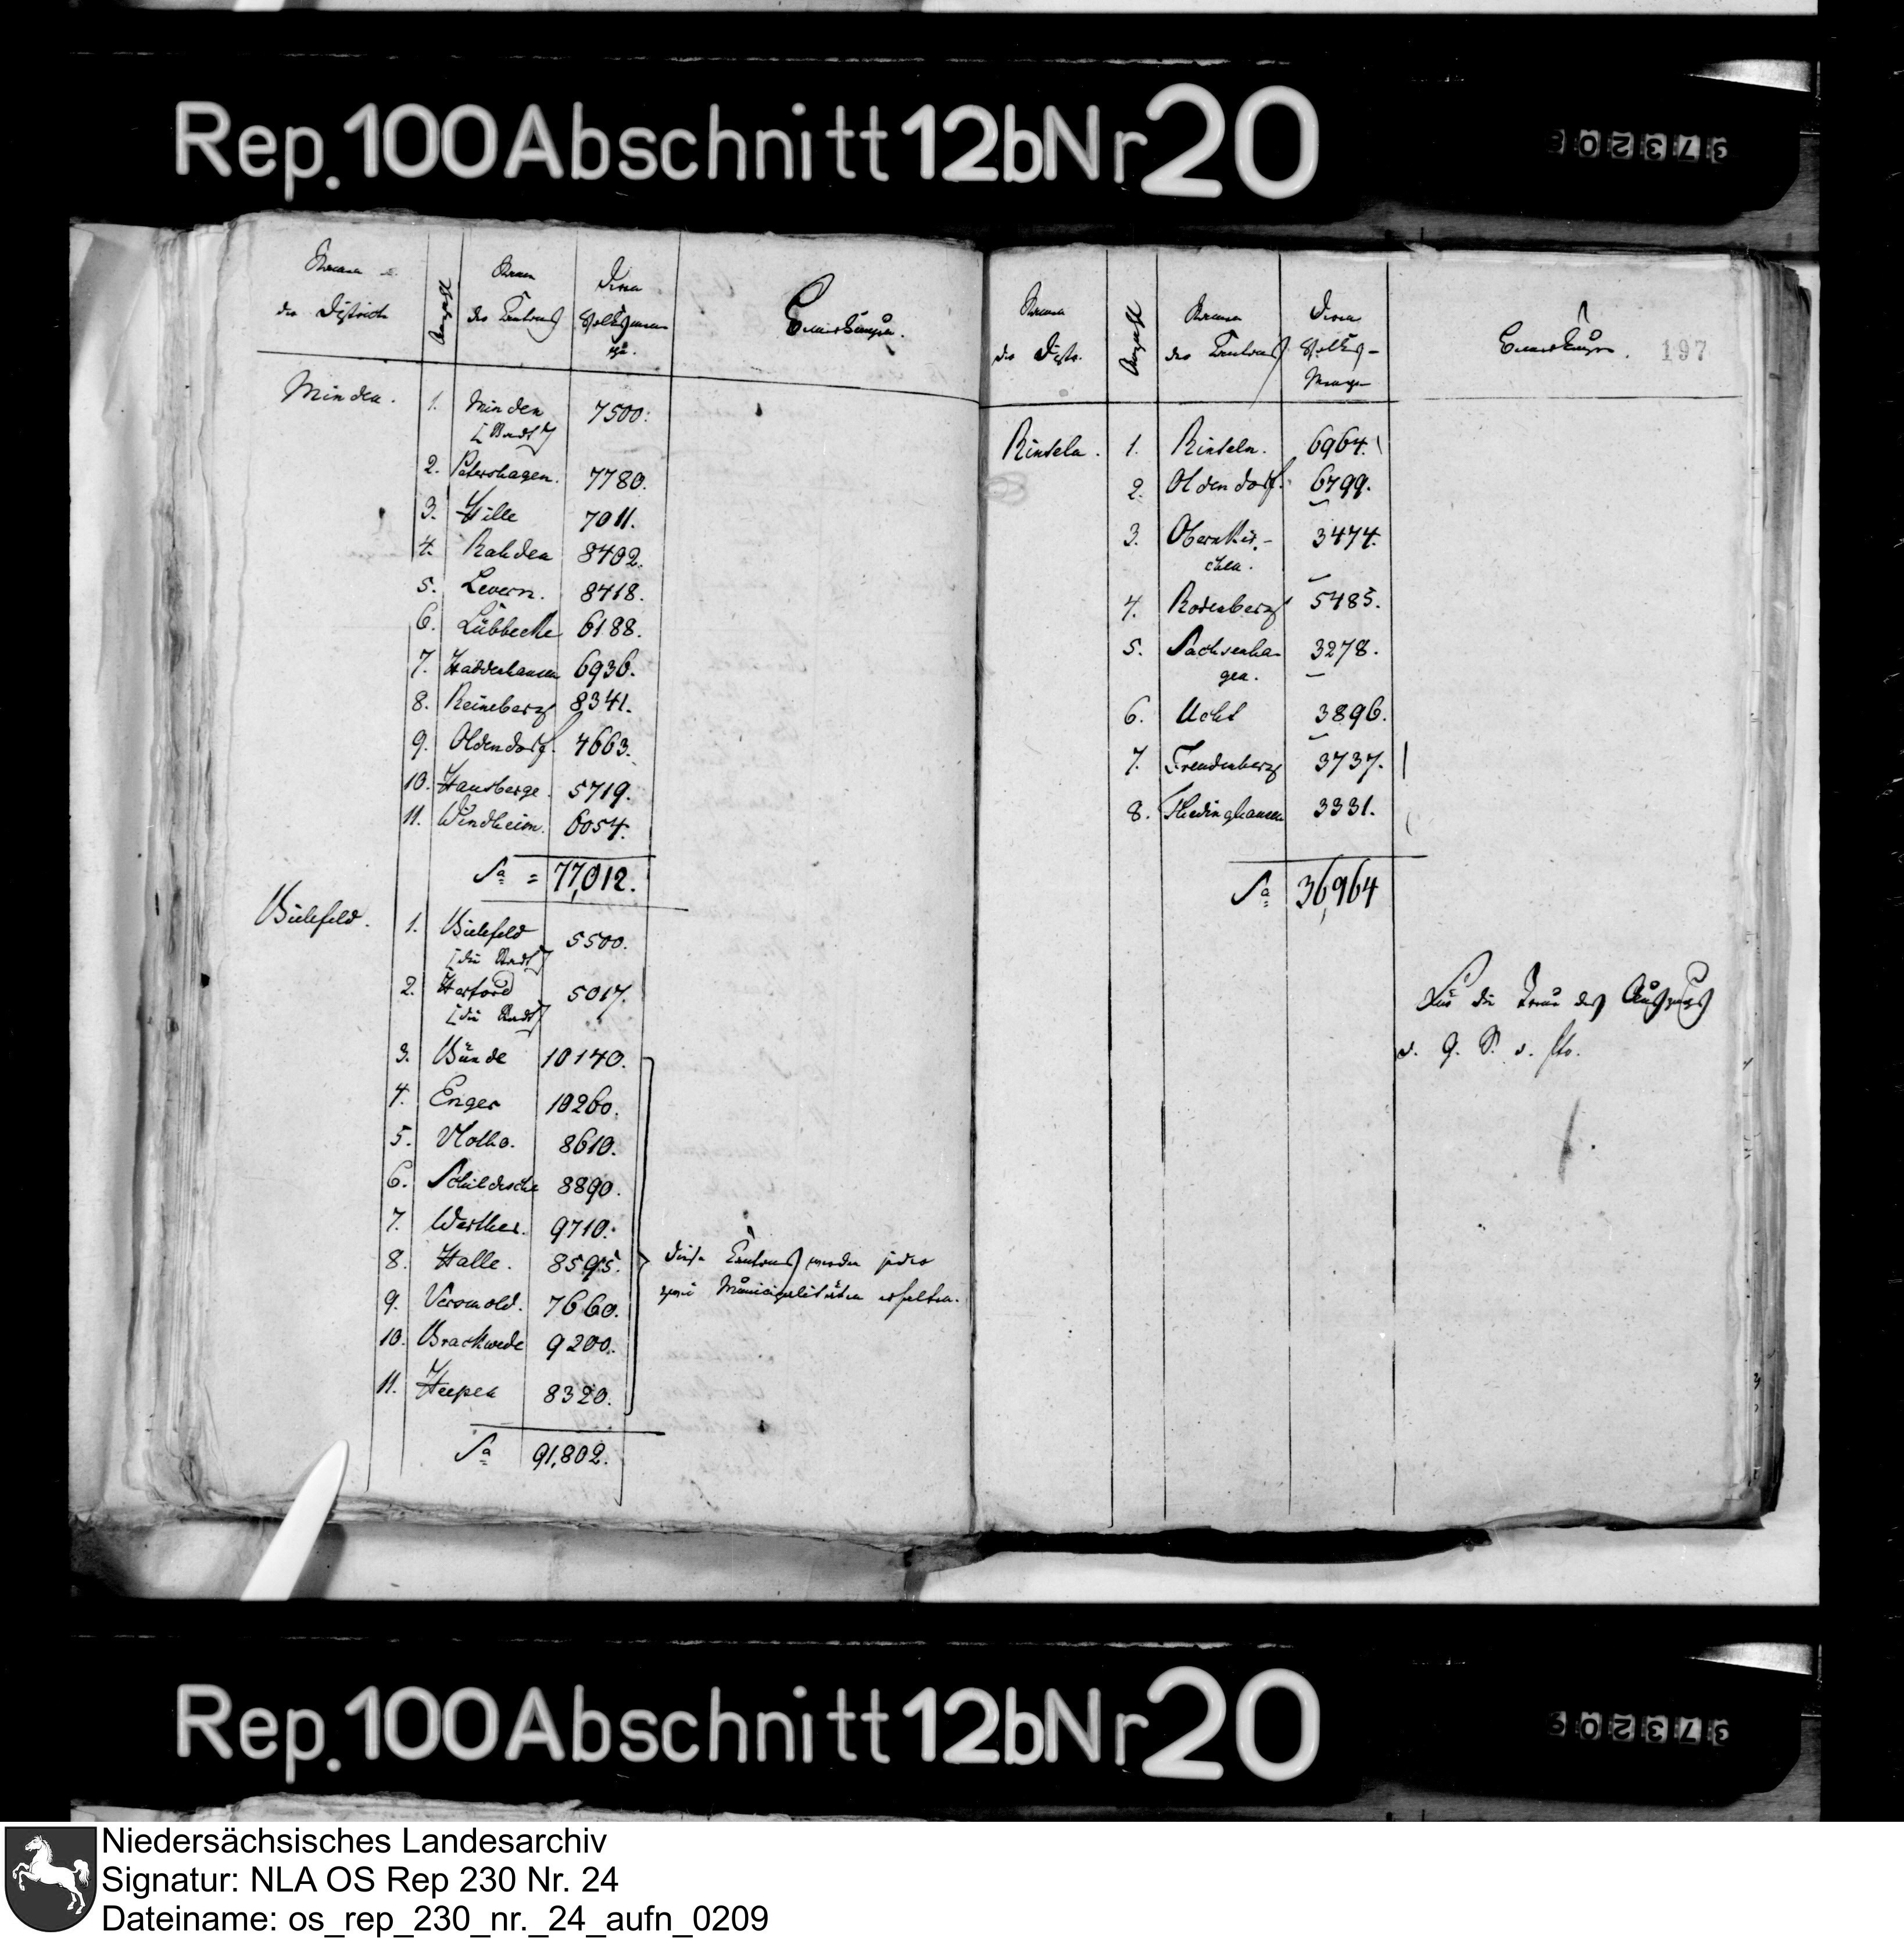 Rep. 100 Abschnitt 12b Nr 20
973209
Namen
der Districte
Anzahl
Namen
der Cantons
Deren
Volksmen-
ge.
Bemerkungen.
Minden.
1. Minden 7500.
[Stadt]
2. Petershagen. 7780.
3. Hille 7011.
4. Rahden 8402.
5. Levern. 8418.
6. Lübbecke 6188.
7. Haddenhausen 6936.
8. Reineberg 8341.
9. Oldendorf. 4663.
10. Hausberge. 5719.
11. Windheim. 6054.
Sa = 77,012.
Bielefeld.
1. Bielefeld 5500.
[die Stadt]
2. Herford 5017.
[die Stadt]
3. Bünde 10140.
4. Enger 10260.
5. Vlotho. 8610.
6. Schildesche 8890.
7. Werther. 9710.
8. Halle. 8595.
9. Versmold. 7660.
10. Brackwede 9200.
11. Heepen 8320.
diese Cantons werden jeder
zwei Municipalitäten erhalten.
Sa 91,802.
Namen
der Distr.
Anzahl
Namen
der Cantons
Deren
Volks-
Menge
Bemerkungen.
197
Rinteln.
1. Rinteln. 6964.
2. Oldendorf. 6799.
3. Obernkir- 3474.
chen.
4. Rodenberg 5485.
5. Sachsenha- 3278.
gen.
6. Ucht 3896.
7. Freudenberg 3737.
8. Thedinghausen 3331.
Sa 36,964
Für die Treue des Auszugs
Rep. 100 Abschnitt 12b Nr 20
973209
Niedersächsisches Landesarchiv
Signatur: NLA OS Rep 230 Nr. 24
Dateiname: os_rep_230_nr._24_aufn_0209